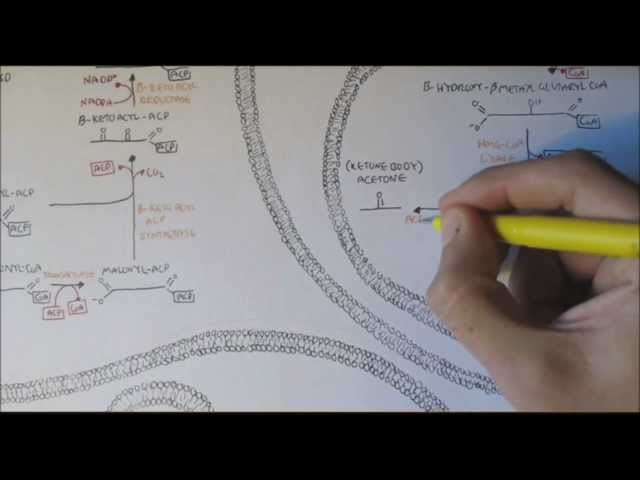 ACP
NADP+
NADPH
B-KETOACYL-ACP
REDUCTASE
B-KETOACYL-ACP
O
O
ACP
ACP
CO2
B-KETOACYL
ACP
SYNTHASE
YL-ACP
O
ACP
NYL-CoA
TRANSACYLASE
MALONYL-ACP
O
CoA
ACP
CoA
O
-O
O
ACP
CoA
B-HYDROXY-B-METHYL GLUTARYL CoA
O
-O
OH
O
CoA
HMG-CoA
LYASE
(KETONE BODY)
ACETONE
O